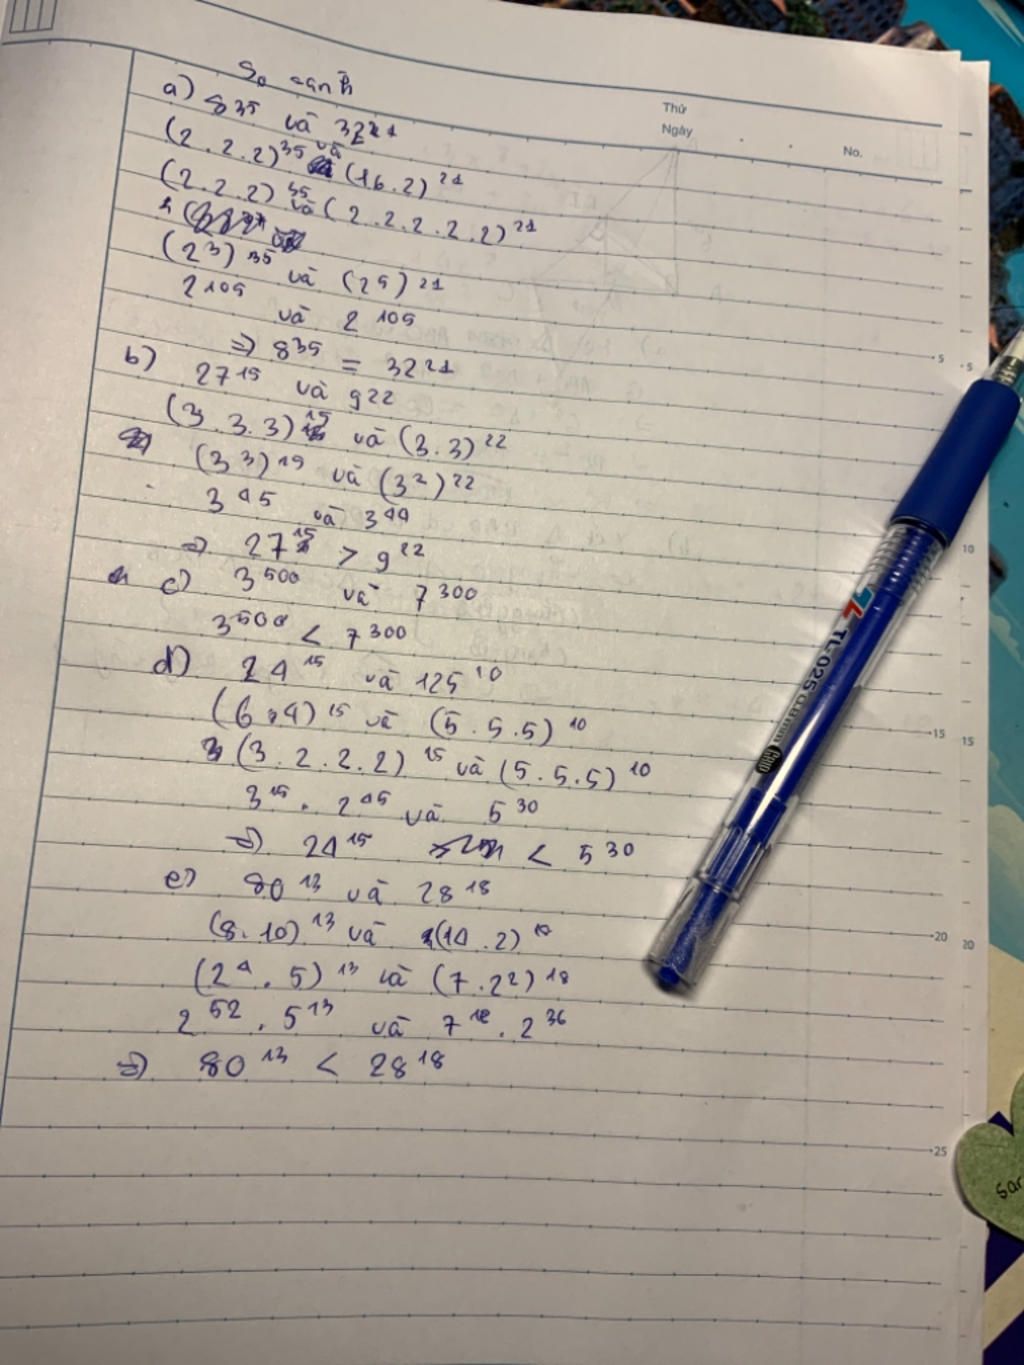 So sánh
Thứ
Ngày
No.
a) 8³⁵ và 32²¹
(2.2.2)³⁵ và (16.2)²¹
(2.2.2)³⁵ và (2.2.2.2.2)²¹
(2³)³⁵ và (2⁵)²¹
2¹⁰⁵ và 2¹⁰⁵
=> 8³⁵ = 32²¹
b) 27¹⁵ và 9²²
(3.3.3)¹⁵ và (3.3)²²
(3³)¹⁵ và (3²)²²
3⁴⁵ và 3⁴⁴
=> 27¹⁵ > 9²²
c) 3⁵⁰⁰ và 7³⁰⁰
3⁵⁰⁰ < 7³⁰⁰
d) 24¹⁵ và 125¹⁰
(6.4)¹⁵ và (5.5.5)¹⁰
(3.2.2.2)¹⁵ và (5.5.5)¹⁰
3¹⁵.2⁴⁵ và 5³⁰
=> 24¹⁵ < 5³⁰
e) 80¹³ và 28¹⁸
(8.10)¹³ và (14.2)¹⁸
(2⁴.5)¹³ và (7.2²)¹⁸
2⁵².5¹³ và 7¹⁸.2³⁶
=> 80¹³ < 28¹⁸
TL-025
Grip
5
5
10
10
15
15
20
20
25